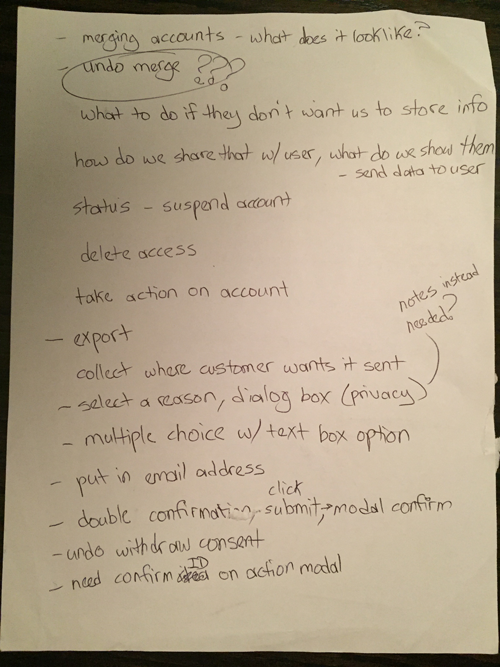 - merging accounts - what does it look like?
- undo merge ???
what to do if they don't want us to store info
how do we share that w/ user, what do we show them
- send data to user
status - suspend account
delete access
take action on account
- export
notes instead
needed?
collect where customer wants it sent
- select a reason, dialog box (privacy)
- multiple choice w/ text box option
- put in email address
click
- double confirmation, submit, → modal confirm
- undo withdraw consent
ID
- need confirm on action modal